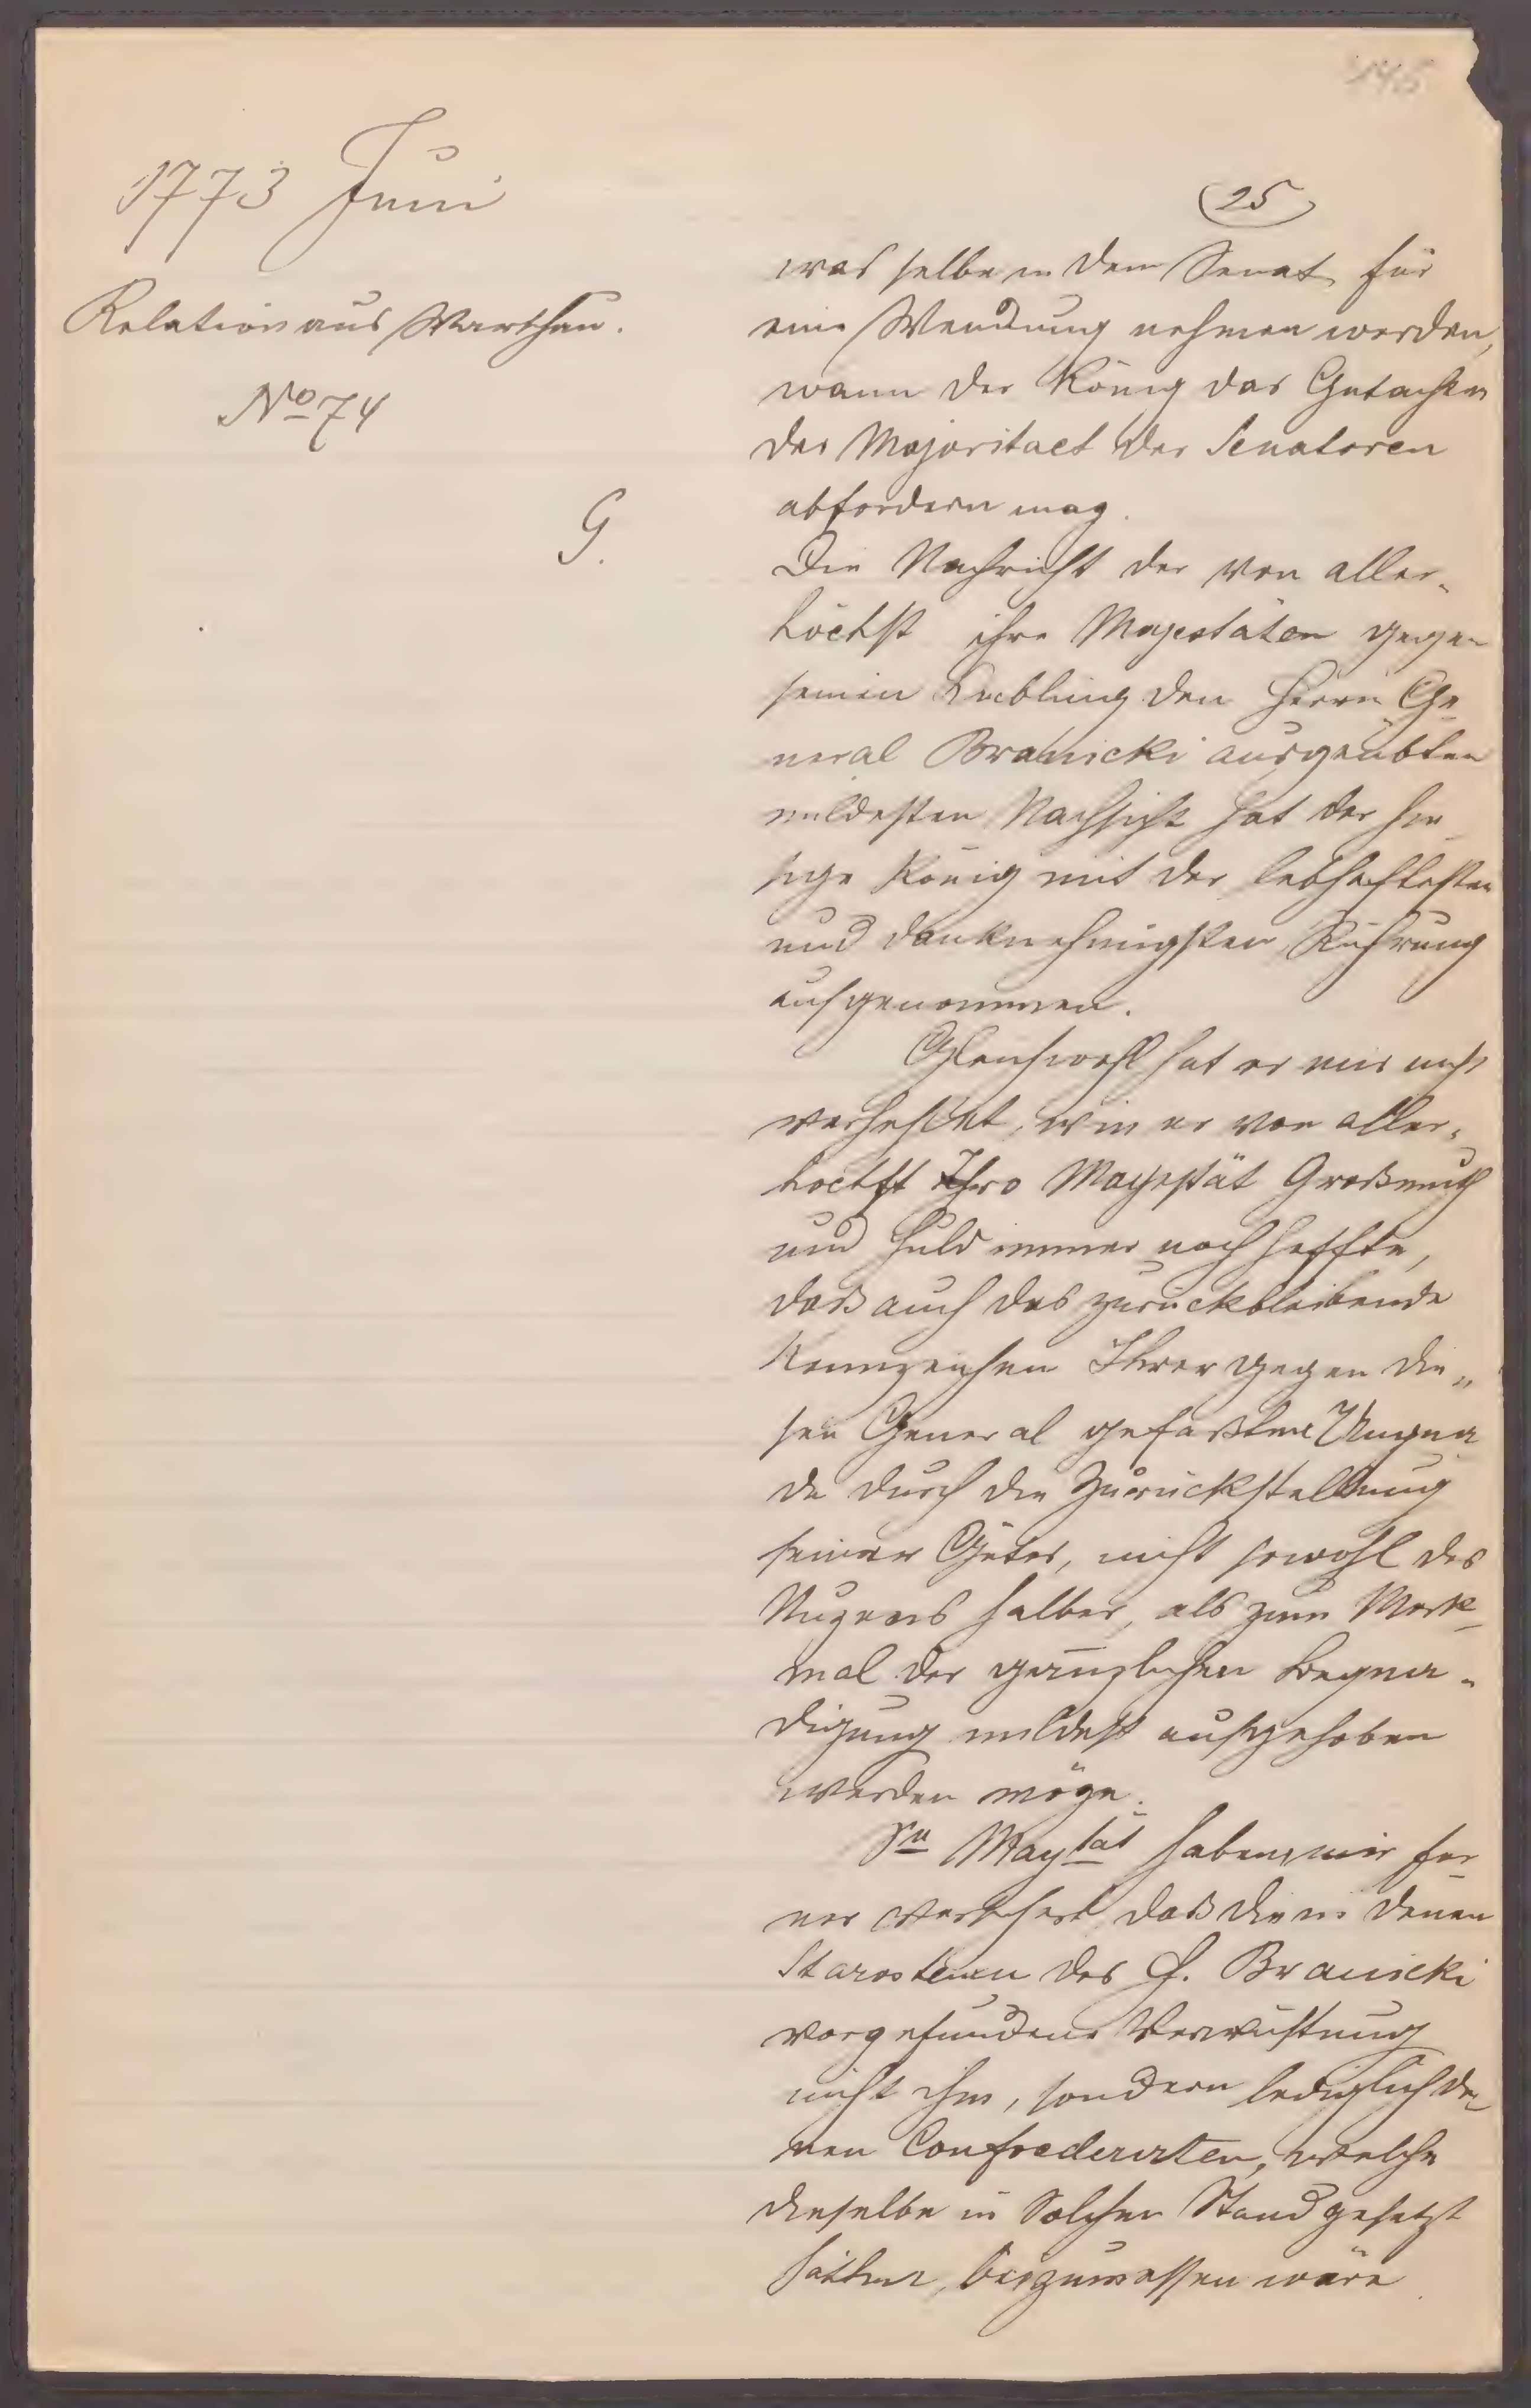 146
1773 Juni
Relation aus Warschau.
No 74
G.
25
was selbe in dem Senat für
eine Wendung nehmen werden,
wann der König das Gutachten
der Majoritaet der Senatoren
abfordern mag.
Die Nachricht der von aller-
höchst ihre Majestäten gegen
seinen Liebling den Herrn Ge
neral Branicki ausgeübten
mildesten Nachsicht hat der hie
sige König mit der lebhaftesten
und danknehmigsten Rührung
aufgenommen.
Gleichwohl hat er mir nicht
verhehlet, wie er von aller-
hoechst Ihro Mayestät Großmuth
und Huld immer noch hoffte,
daß auch das zurückbleibende
Kennzeichen Ihrer gegen die„
sen General gefaßten Ungna
de durch die Zurückstellung
seiner Güter, nicht sowohl des
Nuzens halber, als zum Merk
mal der gänzlichen Begna-
digung mildest aufgehoben
werden möge.
Se Maytät haben mir fer
ner versichert, daß die in denen
Starosteien des H. Branicki
vorgefundene Verwüstung
nicht ihm, sondern lediglich de
nen Confoederirten, welche
dieselbe in Solchen Stand gesetzt
hätten, beizumessen wäre